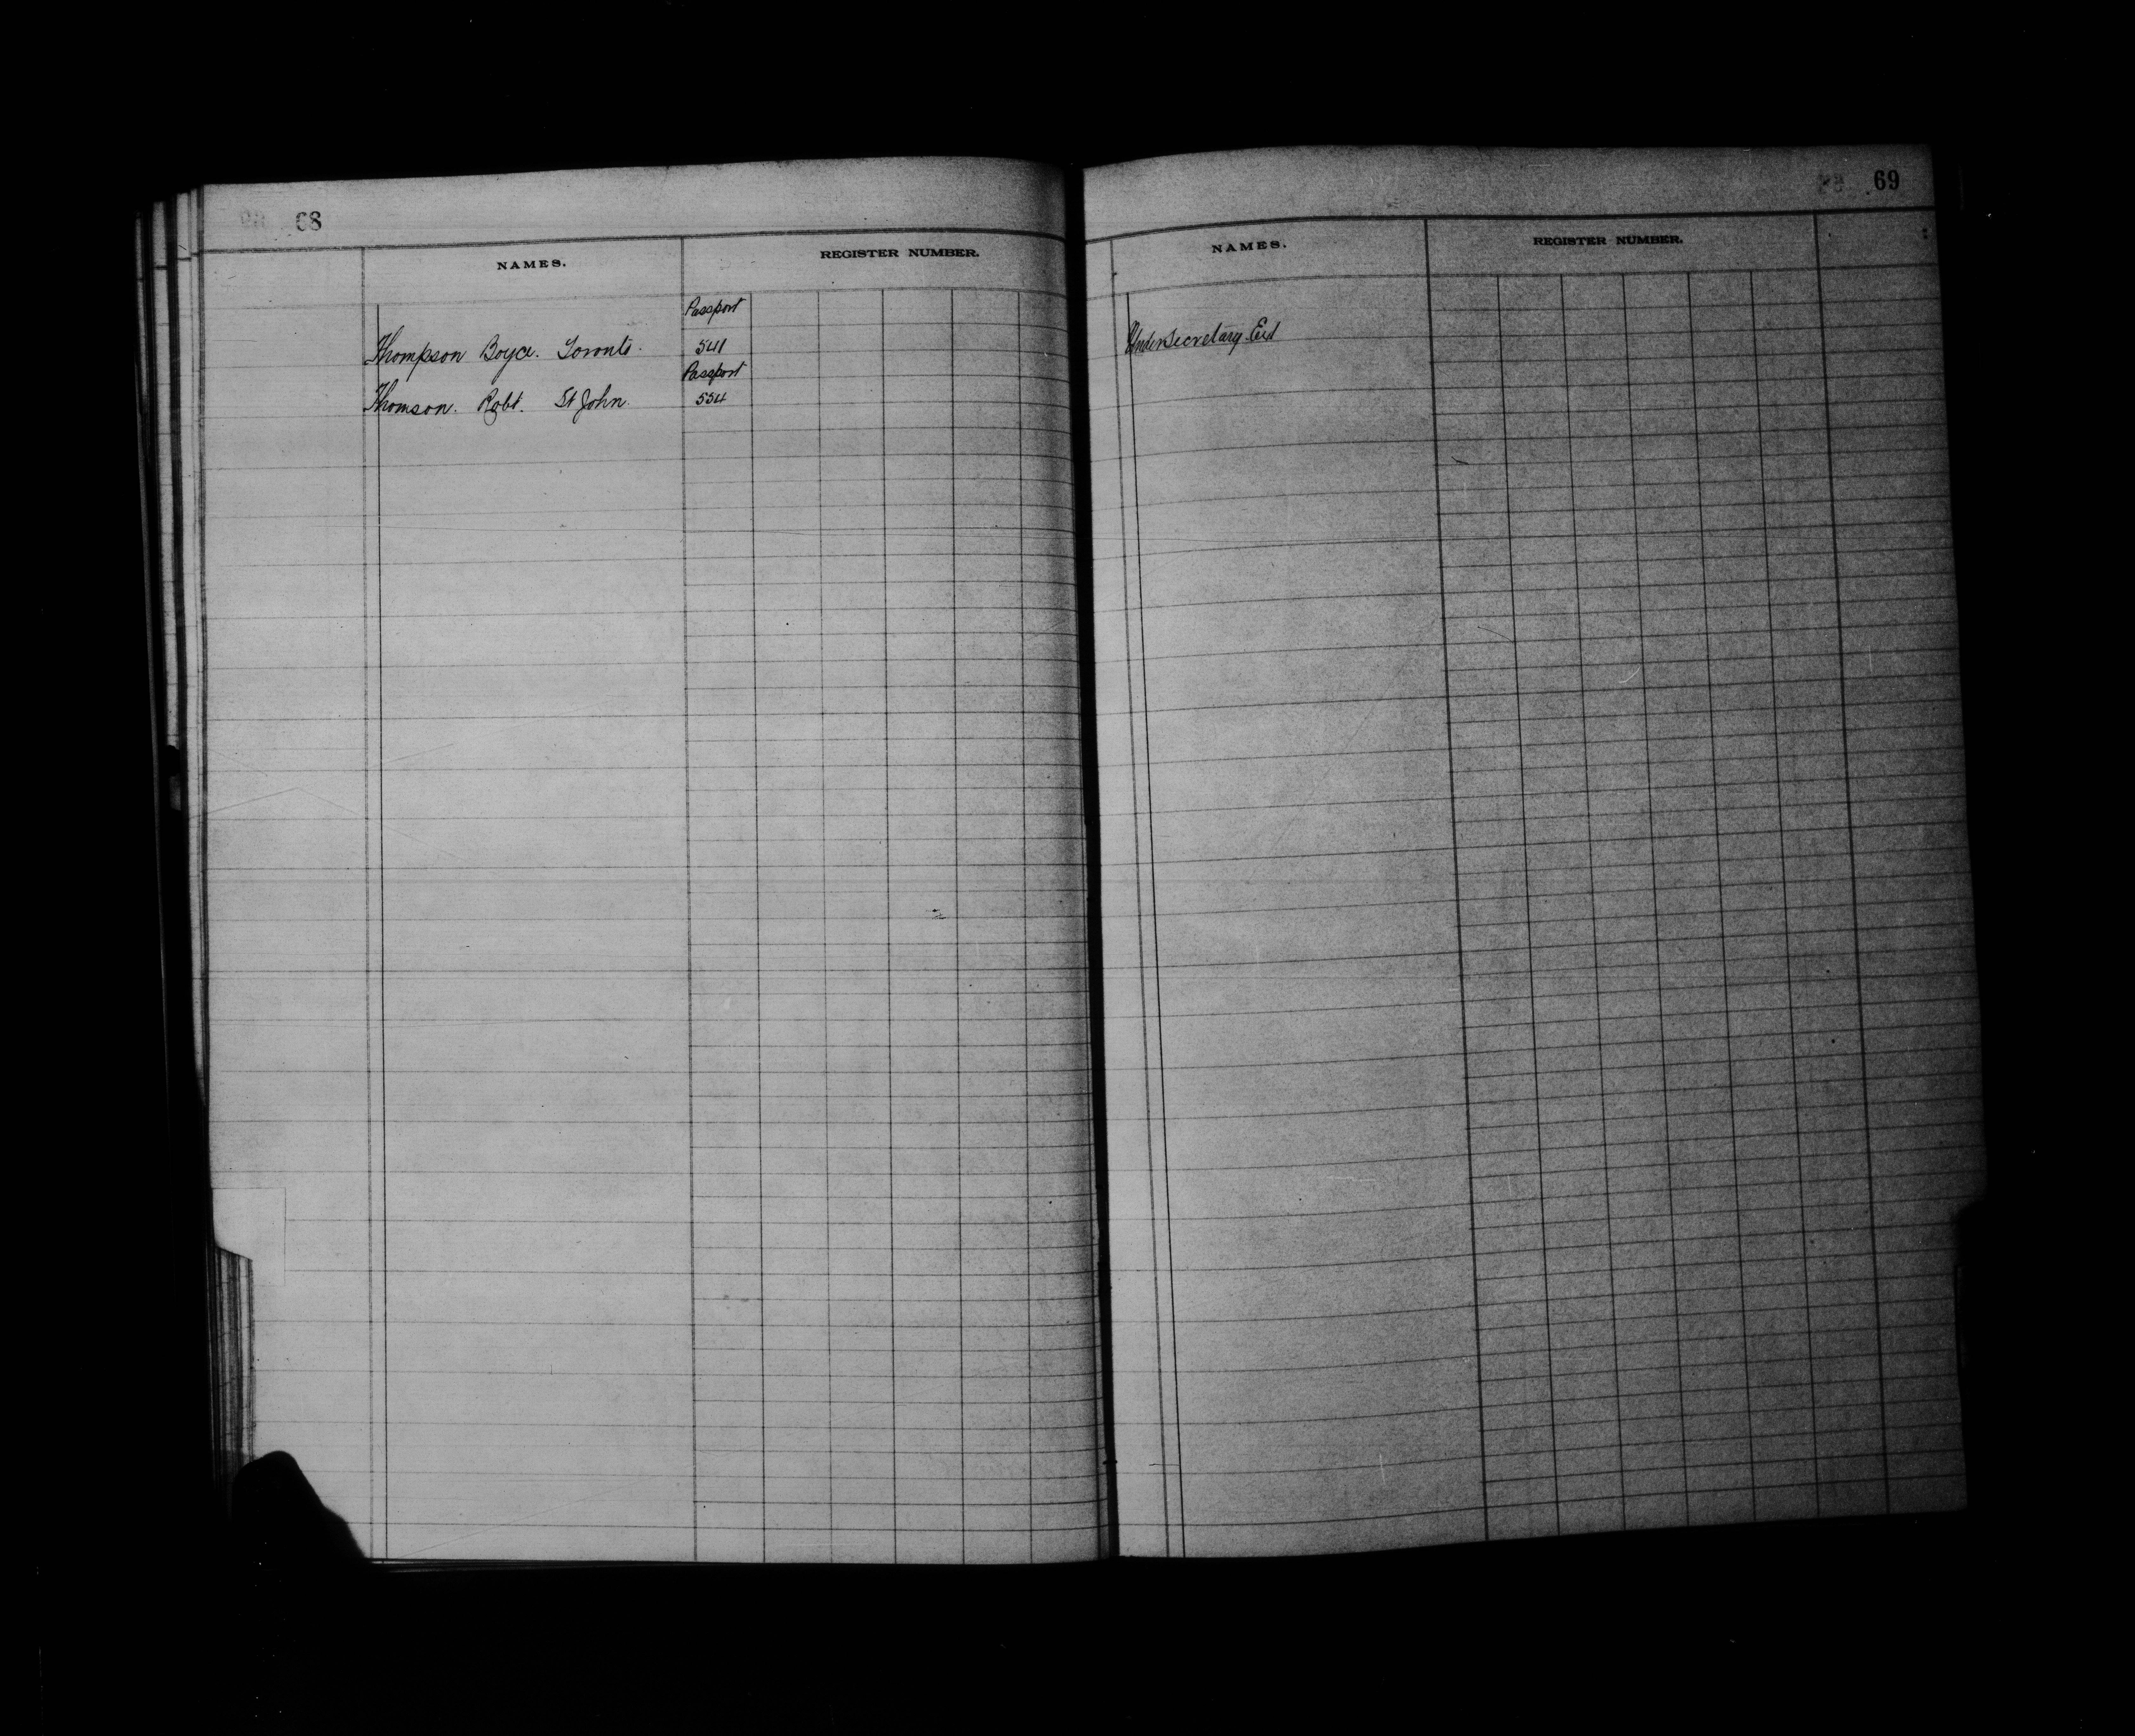 68
NAMES. REGISTER NUMBER.
Passport
Thompson Boyce. Toronto. 541
Passport
Thomson. Robt. St John. 554
69
NAMES. REGISTER NUMBER.
Undersecretary